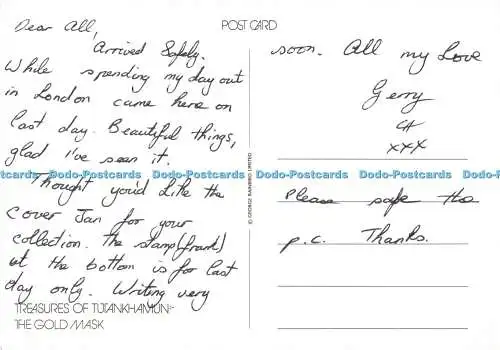 POST CARD
Dear All,
Arrived Safely.
While spending my day out
in London came here on
last day. Beautiful things,
glad I've seen it.
Thought you'd like the
cover Jan for your
collection. The stamp (frank)
at the bottom is for last
day only. Writing very
TREASURES OF TUTANKHAMUN:
THE GOLD MASK
© GEORGE RAINBIRD LIMITED
soon. All my Love
Gerry
xxx
Please safe the
p.c. Thanks.
Dodo-Postcards Dodo-Postcards Dodo-Postcards Dodo-Postcards Dodo-Postcards